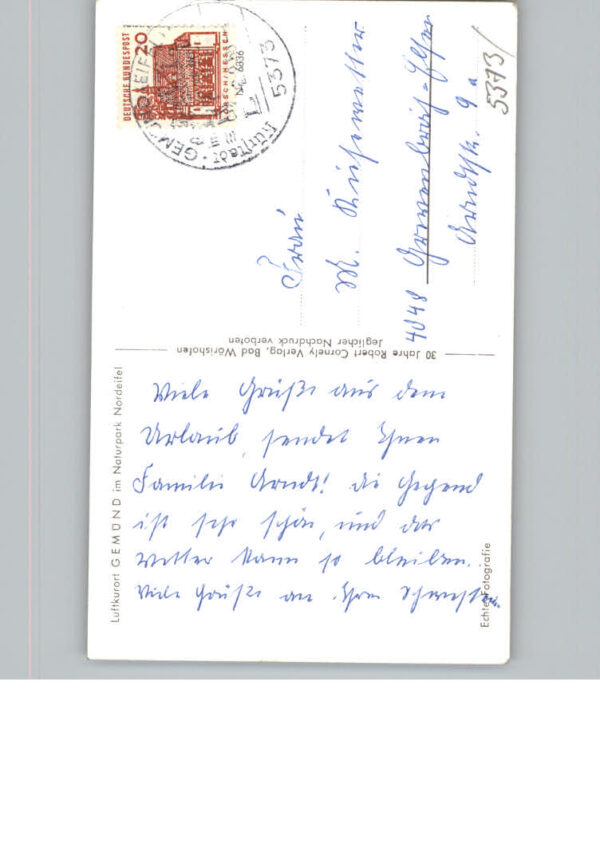 Luftkurort GEMÜND im Naturpark Nordeifel
Viele Grüße aus dem
Urlaub, sendet Ihnen
Familie Arndt! die Gegend
ist sehr schön, und das
Wetter kann so bleiben.
Viele Grüße an Ihre Schwester.
Echte Fotografie
30 Jahre Robert Cornely Verlag, Bad Wörishofen
Jeglicher Nachdruck verboten
DEUTSCHE BUNDESPOST
20
5373
Frau
M.
4048 Grevenbroich-Elsen
9a
5373